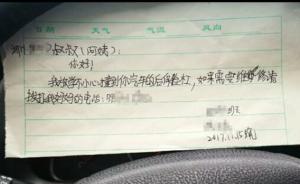 日期 天气 气温 风向
叔叔(阿姨):
你好!
我放学不小心撞到你家车的后保险杠,如果需要维修请
拨打我妈妈的电话:
班
2017.11.15晚